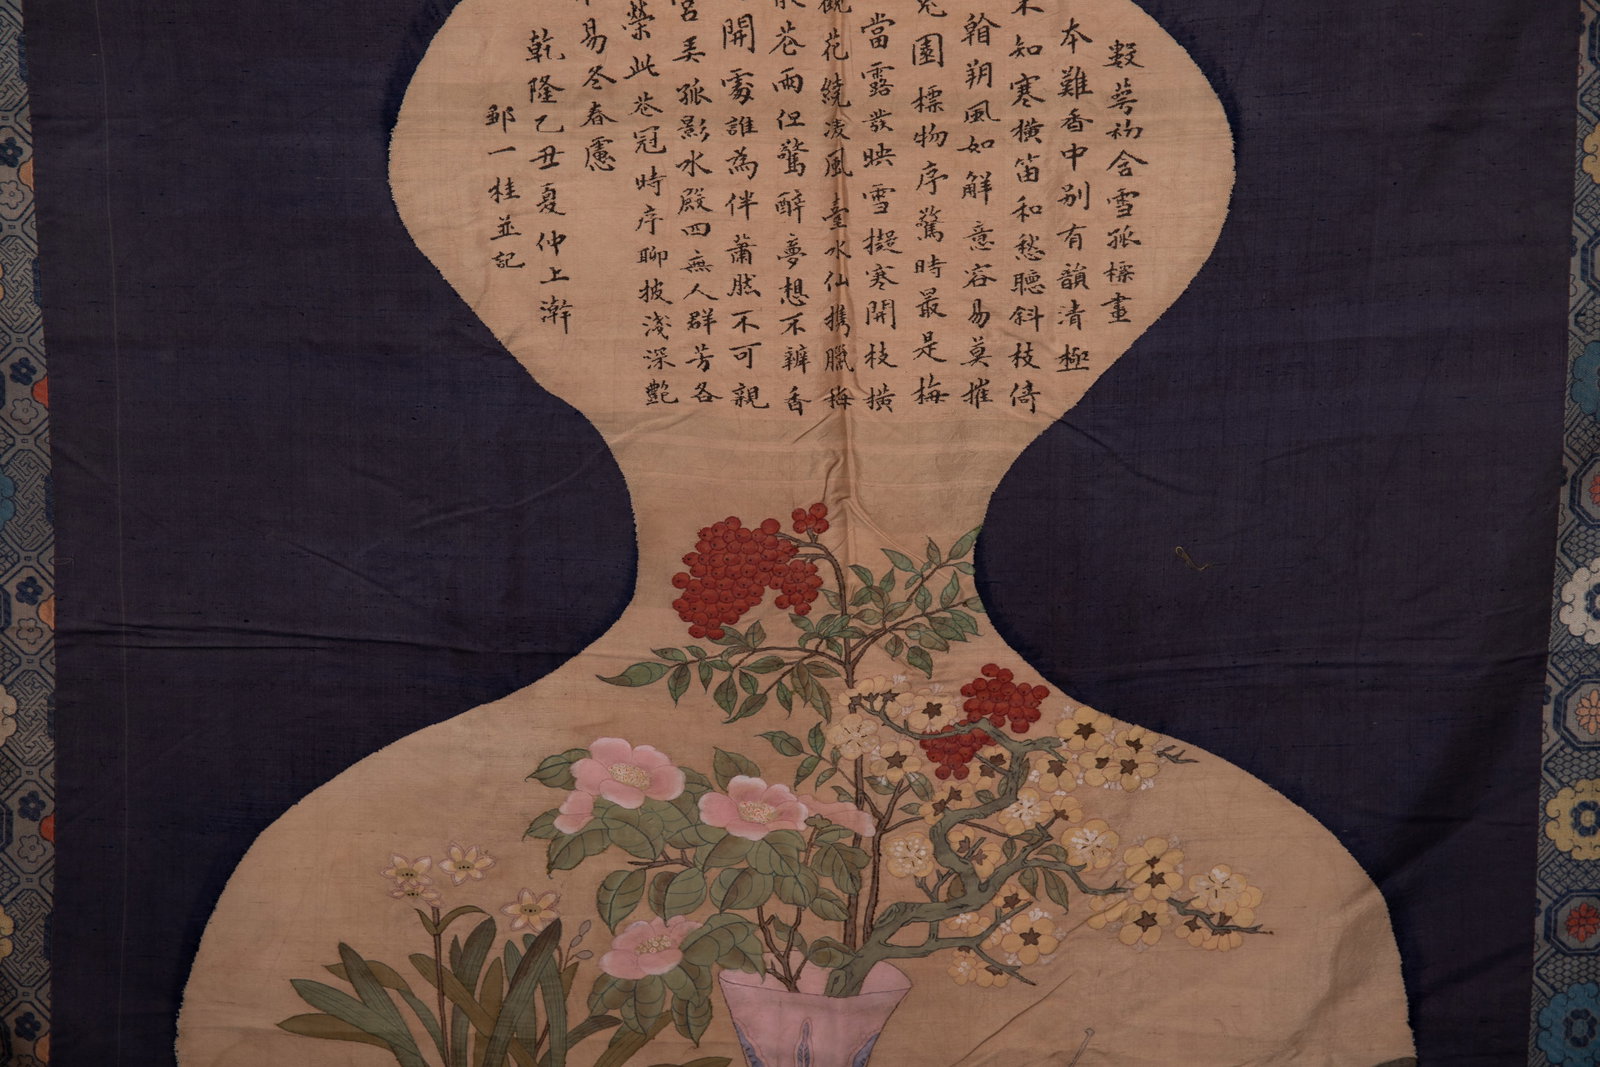 數萼初含雪孤標畫
本難香中別有韻清極
知寒橫笛和愁聽斜枝倚
翰朔風如解意容易莫摧
園標物序驚時最是梅
當露發映雪擬寒開枝橫
花繞凌風臺水仙攜臘梅
花兩但驚醉夢想不辨香
開處誰為伴蕭然不可親
美孤影水殿四無人群芳各
榮此花冠時序聊披淺深艷
易冬春處
乾隆乙丑夏仲上澣
鄒一桂並記